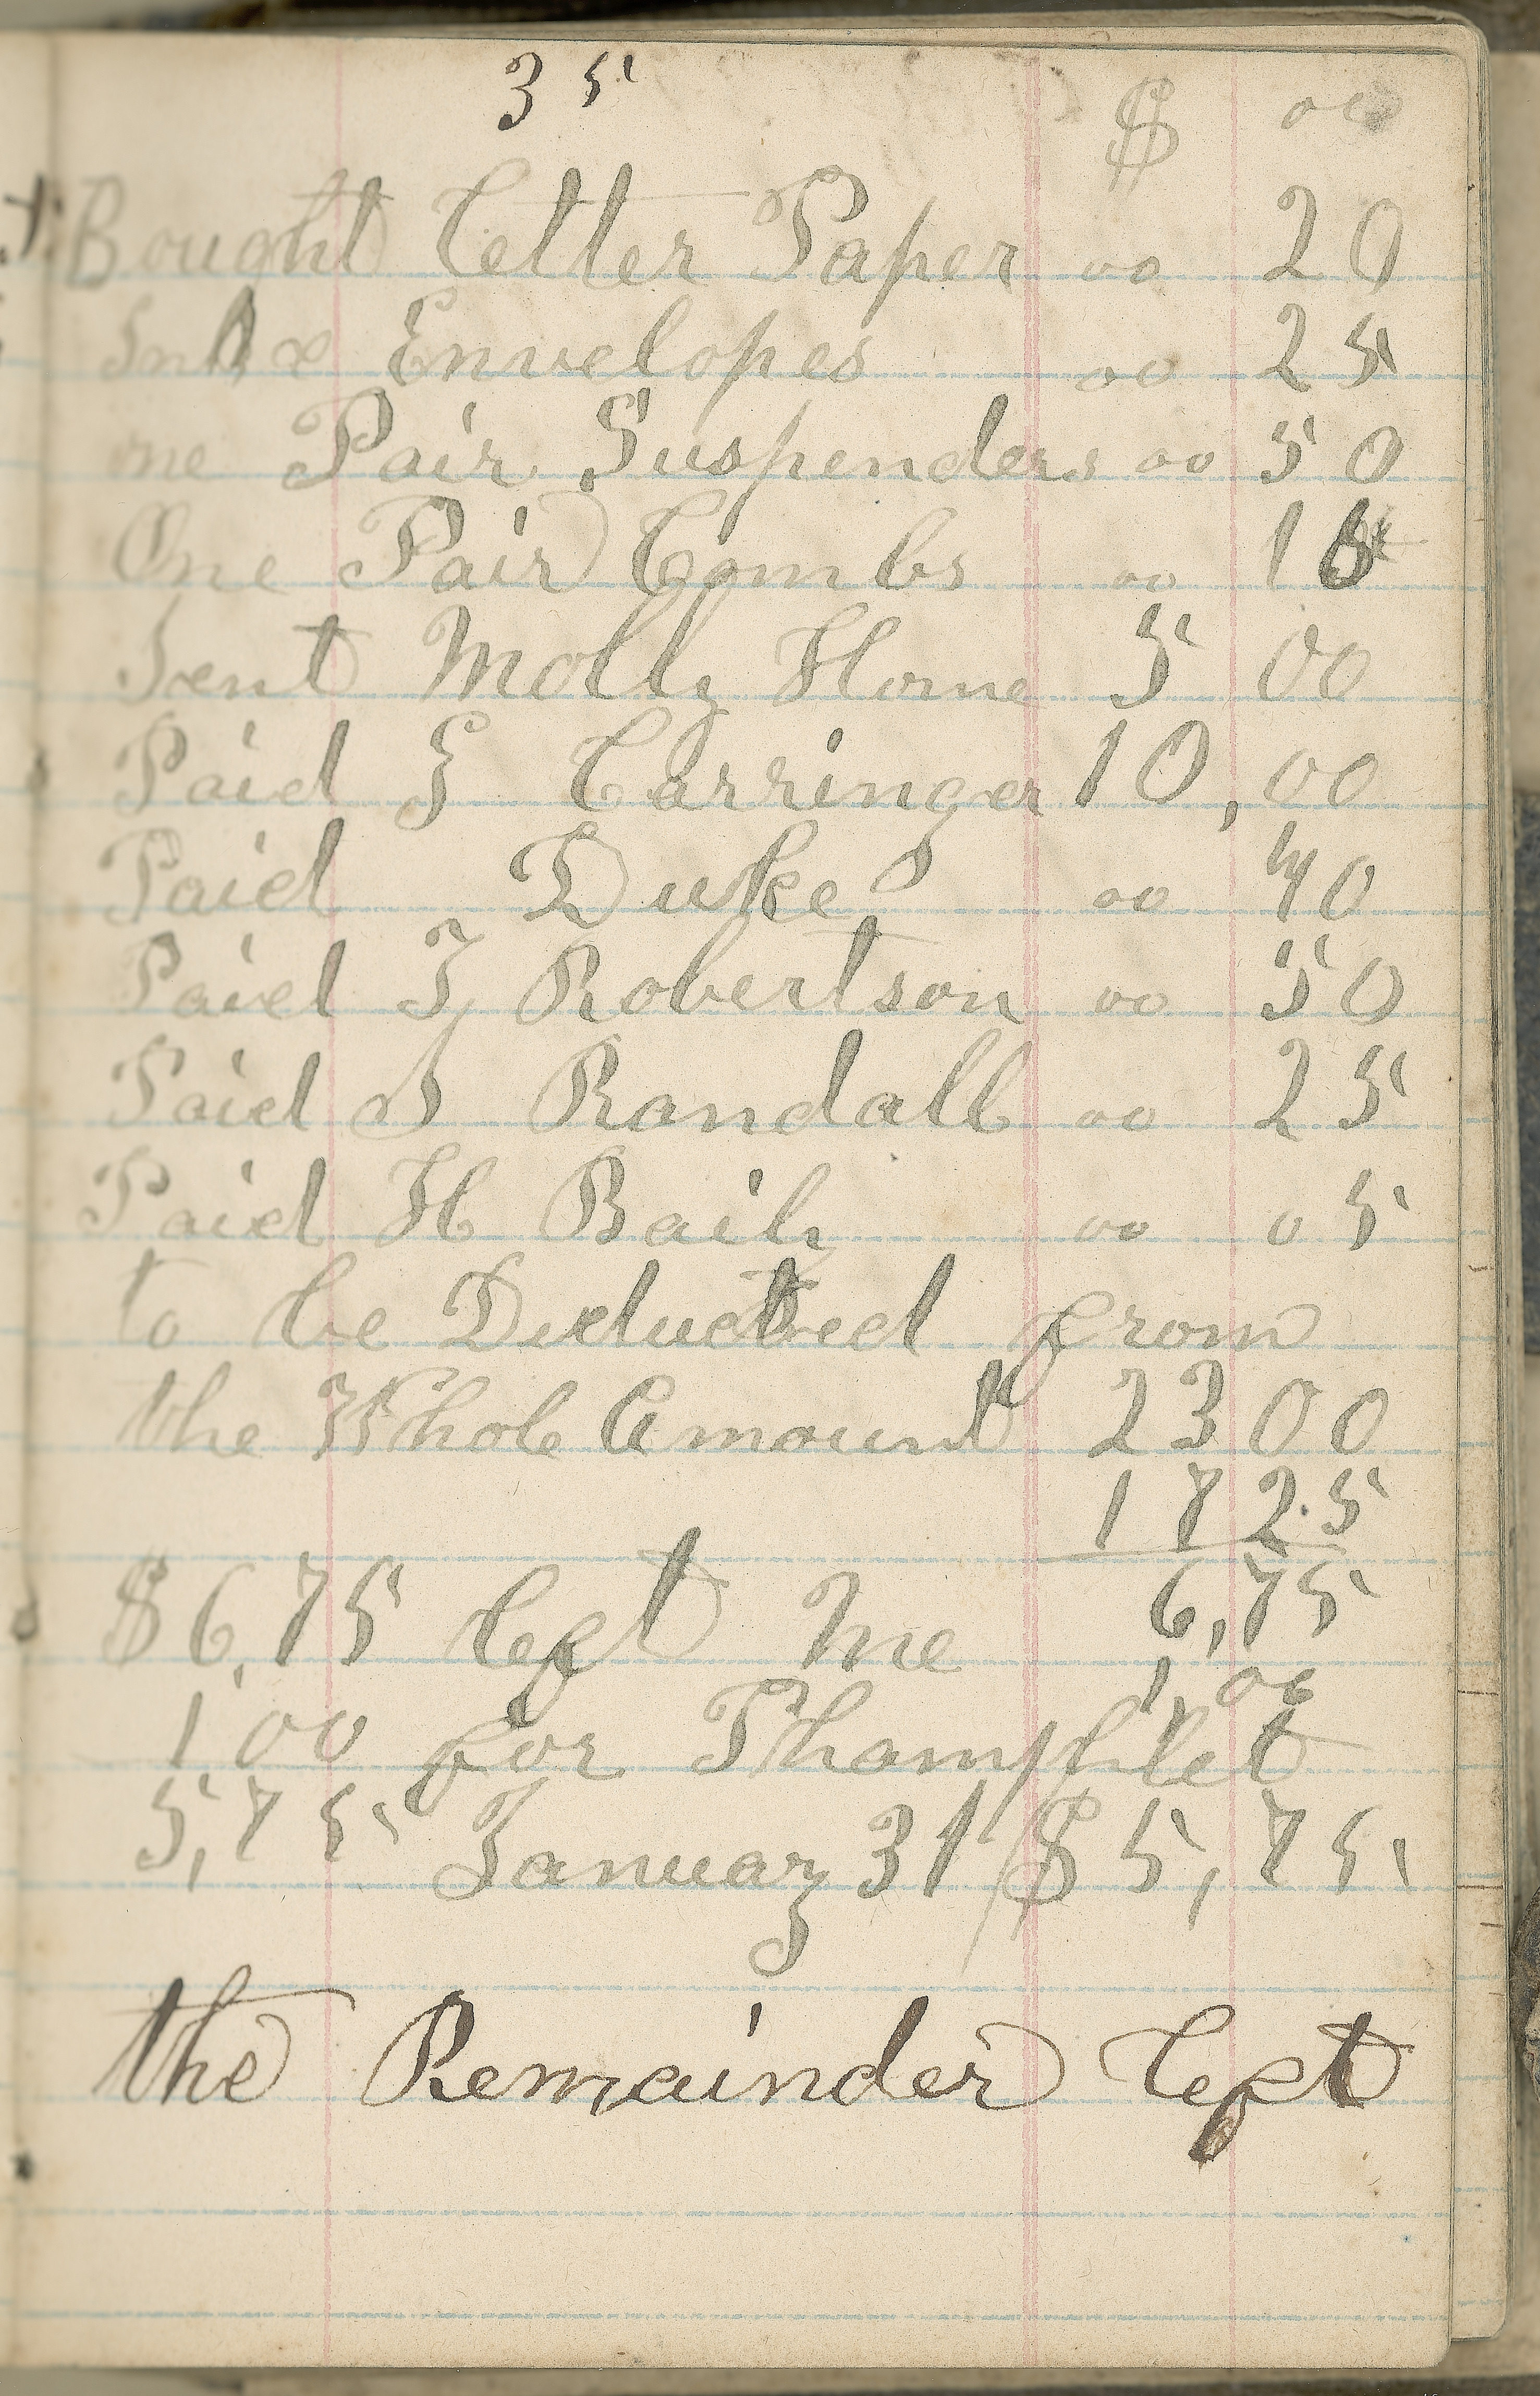 35
$ oo
Bought Letter Paper oo 20
Ink & Envelopes oo 25
one Pair Suspenders oo 50
One Pair Combs oo 15
Sent Molly Home 5 00
Paid S Carringer 10,00
Paid Duke oo 40
Paid T Robertson oo 50
Paid S Randall oo 25
Paid H Baily oo 05
to be Deducted from
the Whole Amount 23 00
17 25
$6,75 left Me 6,75
1,00
1'00 for Phamphlet
5,75 January 31 $5,75
the Remainder left